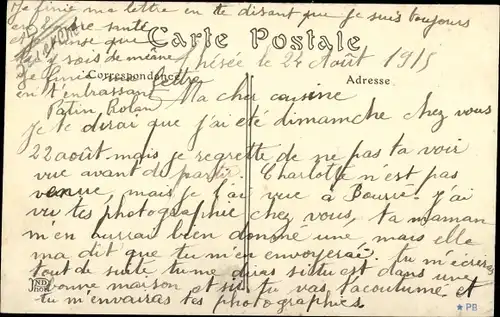 Je finie ma lettre en te disant que je suis toujours
en bonne santé
et pense que
tu y sois de même
Je finie ma lettre
en t'embrassant
Patin Rolan
Carte Postale
Correspondance
Adresse
le 24 Août 1915
Ma cher cousine
Je te dirai que j'ai été dimanche chez vous
22 août mais je regrette de ne pas ta voir
vue avant de partir. Charlotte n'est pas
venue, mais je l'ai vue à Bourré. J'ai
vu tes photographie chez vous, ta maman
m'en aurrai bien donné une, mais elle
ma dit que tu m'en envoyerai. Tu m'écriras
tout de suite tu me diras si tu est dans une
bonne maison et si tu vas tacoutumé et
tu m'envairas tes photographies.
ND
Phot
PB